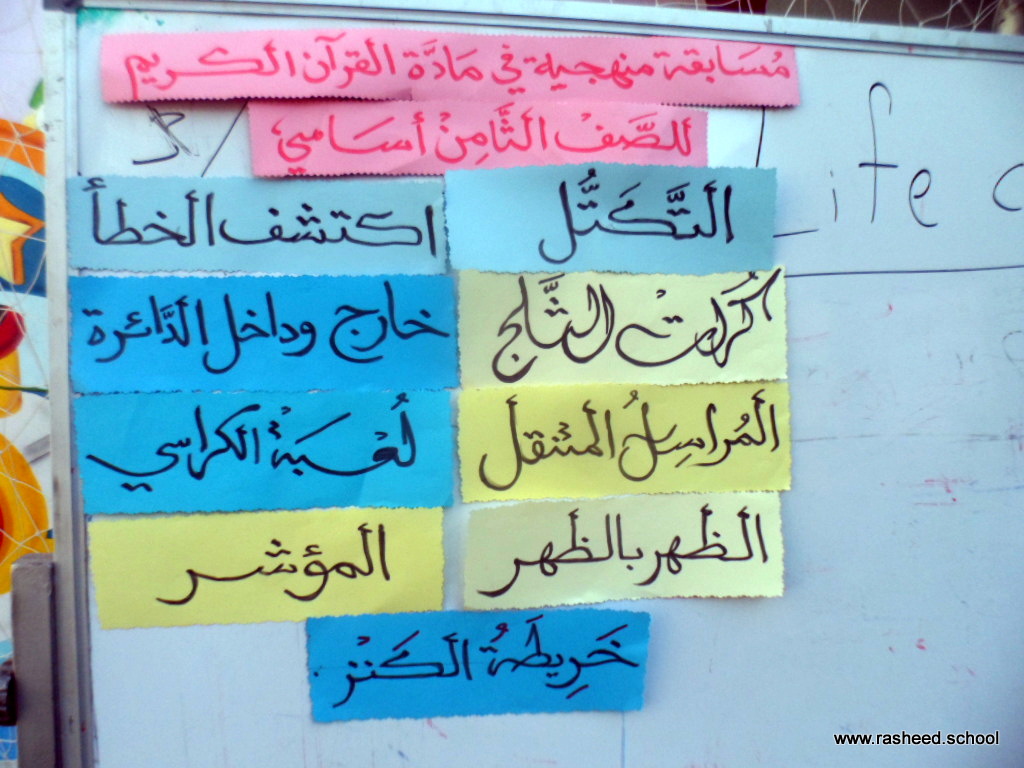 مُسَابقة منهجية في مَادَّة القرآن الكريم
للصَّفْ الثَّامِنْ أسَاسي
التَّكَتُّل
اكتشف الخطأ
كُرَاتْ الثَّلج
خارج وداخل الدَّائرة
المُراسِلُ المتنقل
لُعْبَةُ الكراسي
الظهر بالظهر
المؤشر
خَرِيطَةُ الكَنْز
Life
www.rasheed.school